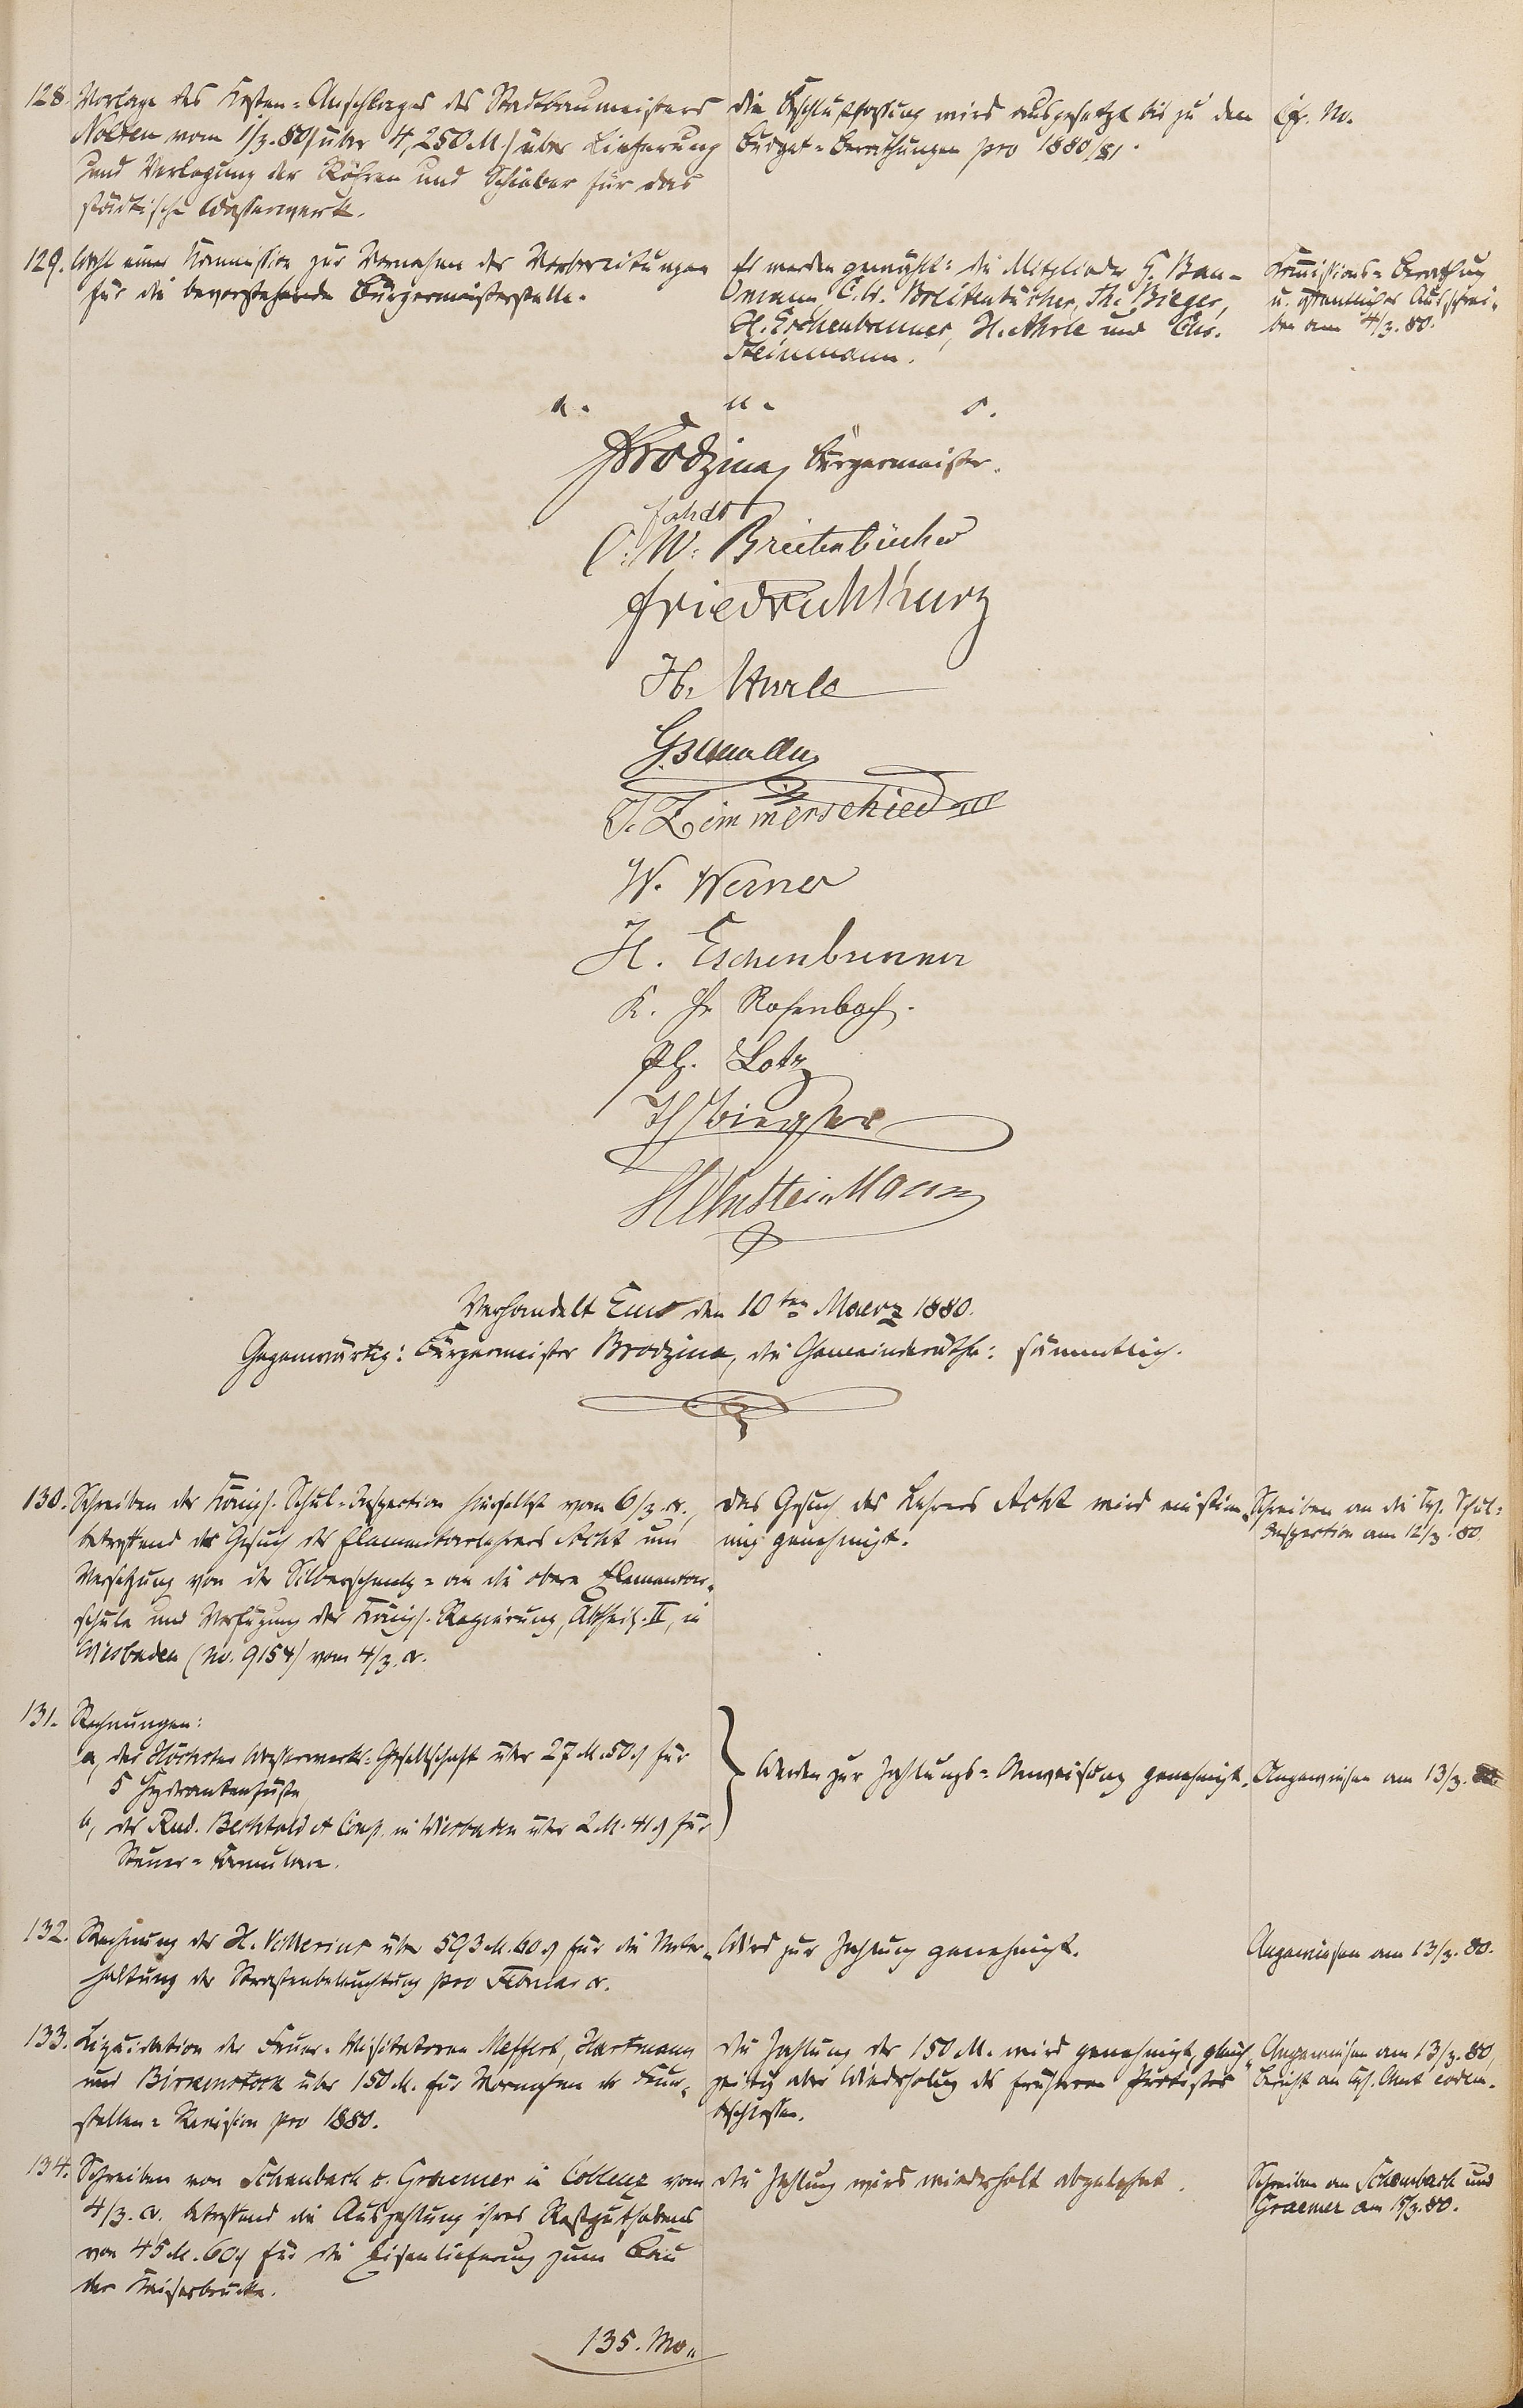 128. Vorlage des Kosten-Anschlages des Stadtbaumeisters
Nolden vom 1/3. 80 über 4,250 M. über Lieferung
und Verlegung der Röhren und Schieber für das
städtische Wasserwerk.
die Beschlußfassung wird ausgesetzt bis zu den
Budget-Berathungen pro 1880/81.
Cfr. No.
129. Wahl einer Kommission zur Vornahme der Vorbereitungen
für die bevorstehende Bürgermeisterstelle.
Es werden gewählt: die Mitglieder G. Bau-
mann, C. W. Breitenbücher, Th. Bieger,
H. Eschenbrenner, H. und Chr.
Steinmann.
Kommissions-Berathung
u. öffentliches Ausschrei-
ben am 4/3. 80.
a. u. s.
Brodzina, Bürgermeister.
C. W. Breitenbücher
Friedrich Kurz
H.
G. Baumann
J. Zimmerschied III
W. Werner
H. Eschenbrenner
K. Fr Rosenbach.
Ph. Lotz
Th Bieger
H Chr Steinmann
Verhandelt Ems den 10ten Maerz 1880.
Gegenwärtig: Bürgermeister Brodzina, die Gemeinderäthe: sämmtlich.
130. Schreiben der Königl. Schul-Inspection hierselbst vom 6/3. cr.,
betreffend das Gesuch des Elementarlehrers Acht um
Versetzung von der Silberschmelz- an die obere Elementar-
schule und Verfügung der Königl. Regierung, Abtheil. II, in
Wiesbaden (No. 9154) vom 4/3. cr.
das Gesuch des Lehrers Acht wird einstim-
mig genehmigt.
Schreiben an die Kgl. Schul-
Inspection am 12/3. 80.
131. Rechnungen:
a, der Höchster Wasserwerks-Gesellschaft über 27 M. 50 ₰ für
5 Hydrantenfüße
b, der Rud. Bechtold et Comp. in Wiesbaden über 2 M. 41 ₰ für
Steuer-Formulare.
Werden zur Zahlungs-Anweisung genehmigt.
Angewiesen am 13/3. 80.
132. Rechnung des H. über 593 M. 60 ₰ für die Unter-
haltung der Straßenbeleuchtung pro Februar cr.
Wird zur Zahlung genehmigt.
Angewiesen am 13/3. 80.
133. Liquidation der Feuer-Visitatoren Meffert, Hartmann
und Birkenstock über 150 M. für Vornahme der Feuer-
stellen-Revision pro 1880.
die Zahlung der 150 M. wird genehmigt, gleich-
zeitig aber Wiederholung des früheren Protestes
beschlossen.
Angewiesen am 13/3. 80,
Bericht an Kgl. Amt eodem.
134. Schreiben von Schaubach & Graemer in Coblenz vom
4/3. cr. betreffend die Auszahlung ihres Restguthabens
von 45 M. 60 ₰ für die Eisenlieferung zum Bau
der Kaiserbrücke.
die Zahlung wird wiederholt abgelehnt.
Schreiben an Schaubach und
Graemer am 15/3. 80.
135. Mo„